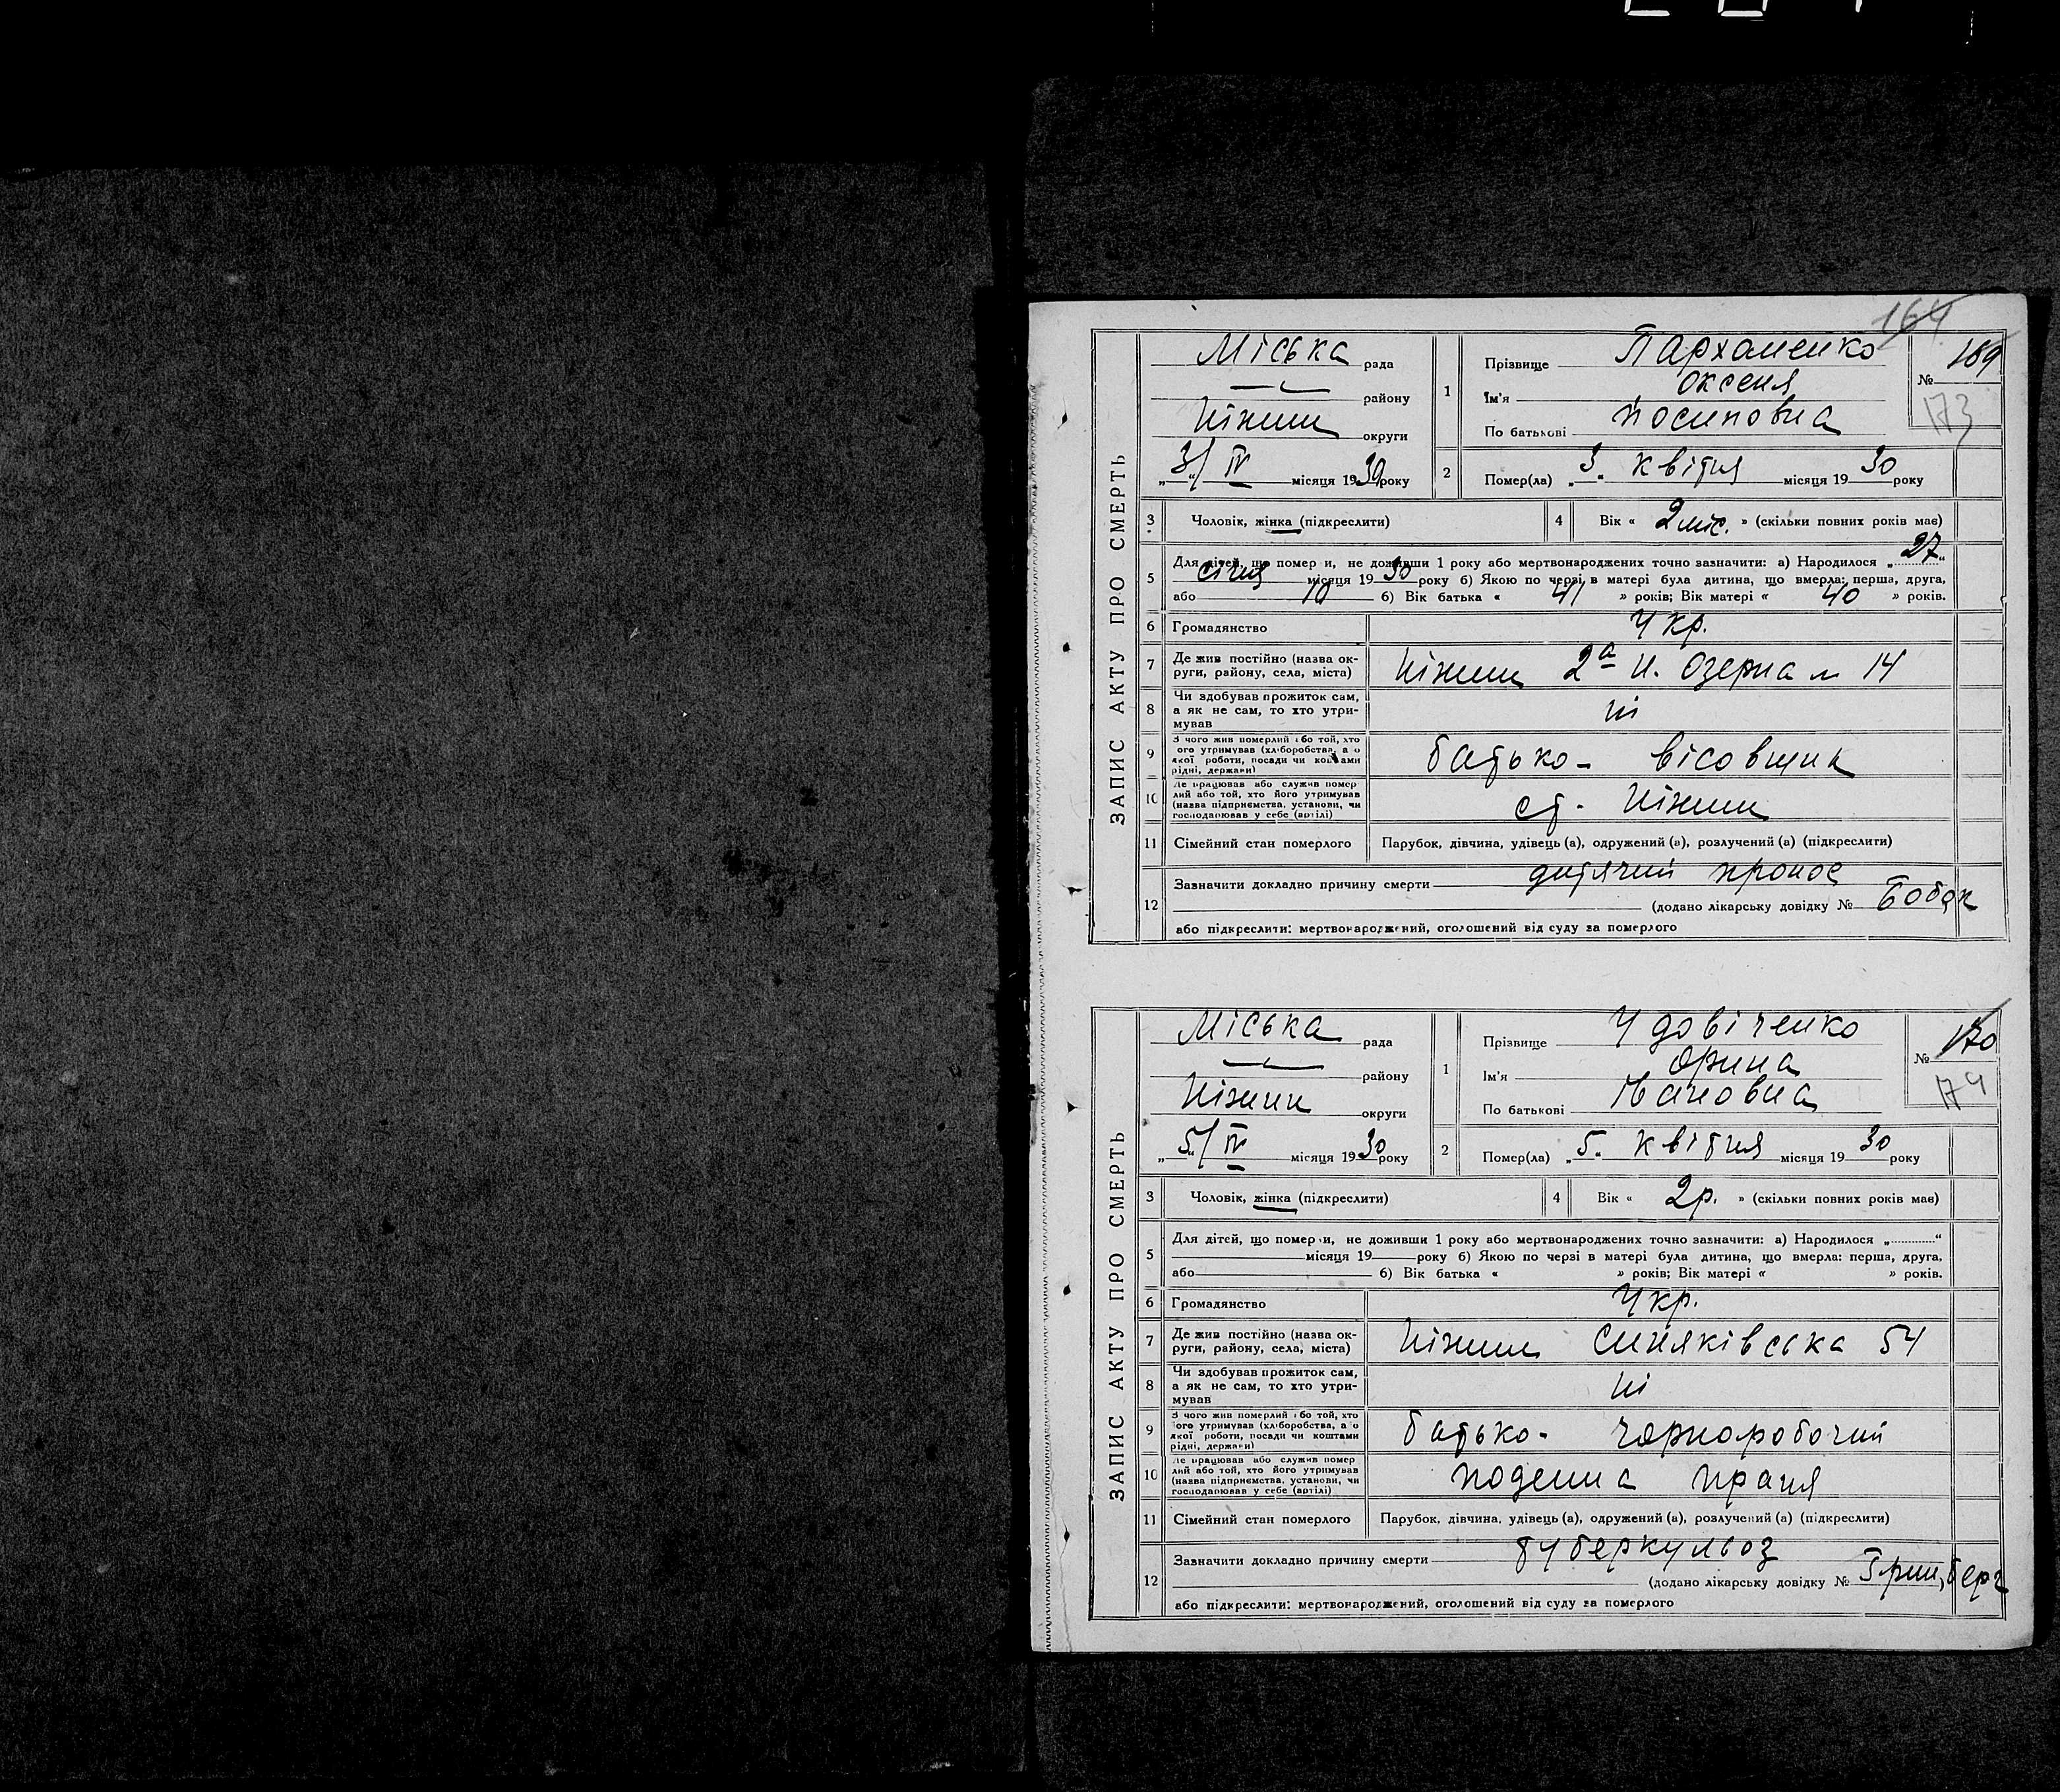 164
ЗАПИС АКТУ ПРО СМЕРТЬ
Міська рада
району
Ніжин округи
„3/“ IV місяця 1930 року
1 Прізвище Пархоменко
Ім'я Оксеня
По батькові Йосиповна
№ 169
173
2 Помер(ла) „3“ квітня місяця 1930 року
3 Чоловік, жінка (підкреслити)
4 Вік « 2 міс. » (скільки повних років має)
5 Для дітей, що померли, не доживши 1 року або мертвонароджених точно зазначити: а) Народилося „27“
січня місяця 1930 року б) Якою по черзі в матері була дитина, що вмерла: перша, друга,
або 10 б) Вік батька « 41 » років; Вік матері « 40 » років.
6 Громадянство Укр.
7 Де жив постійно (назва ок-
руги, району, села, міста) Ніжин 2а Н. Озерна № 14
8 Чи здобував прожиток сам,
а як не сам, то хто утри-
мував ні
9 З чого жив померлий або той, хто
його утримував (хліборобства, або
якої роботи, посади чи коштами
рідні, держави) батько - вісовщик
10 Де працював або служив помер
лий або той, хто його утримував
(назва підприємства, установи, чи
господарював у себе (артілі) ст. Ніжин
11 Сімейний стан померлого Парубок, дівчина, удівець (а), одружений (а), розлучений (а) (підкреслити)
12 Зазначити докладно причину смерти дитячий пронос
(додано лікарську довідку № Бобок
або підкреслити: мертвонароджений, оголошений від суду за померлого
ЗАПИС АКТУ ПРО СМЕРТЬ
Міська рада
району
Ніжин округи
„5/“ IV місяця 1930 року
1 Прізвище Удовіченко
Ім'я Орина
По батькові Івановна
№ 170
174
2 Помер(ла) „5“ квітня місяця 1930 року
3 Чоловік, жінка (підкреслити)
4 Вік « 2 р. » (скільки повних років має)
5 Для дітей, що померли, не доживши 1 року або мертвонароджених точно зазначити: а) Народилося „ “
місяця 19 року б) Якою по черзі в матері була дитина, що вмерла: перша, друга,
або б) Вік батька « » років; Вік матері « » років.
6 Громадянство Укр.
7 Де жив постійно (назва ок-
руги, району, села, міста) Ніжин Синяківська 54
8 Чи здобував прожиток сам,
а як не сам, то хто утри-
мував ні
9 З чого жив померлий або той, хто
його утримував (хліборобства, або
якої роботи, посади чи коштами
рідні, держави) батько - чорноробочий
10 Де працював або служив помер
лий або той, хто його утримував
(назва підприємства, установи, чи
господарював у себе (артілі) поденна праця
11 Сімейний стан померлого Парубок, дівчина, удівець (а), одружений (а), розлучений (а) (підкреслити)
12 Зазначити докладно причину смерти туберкульоз
(додано лікарську довідку № Гринберг
або підкреслити: мертвонароджений, оголошений від суду за померлого